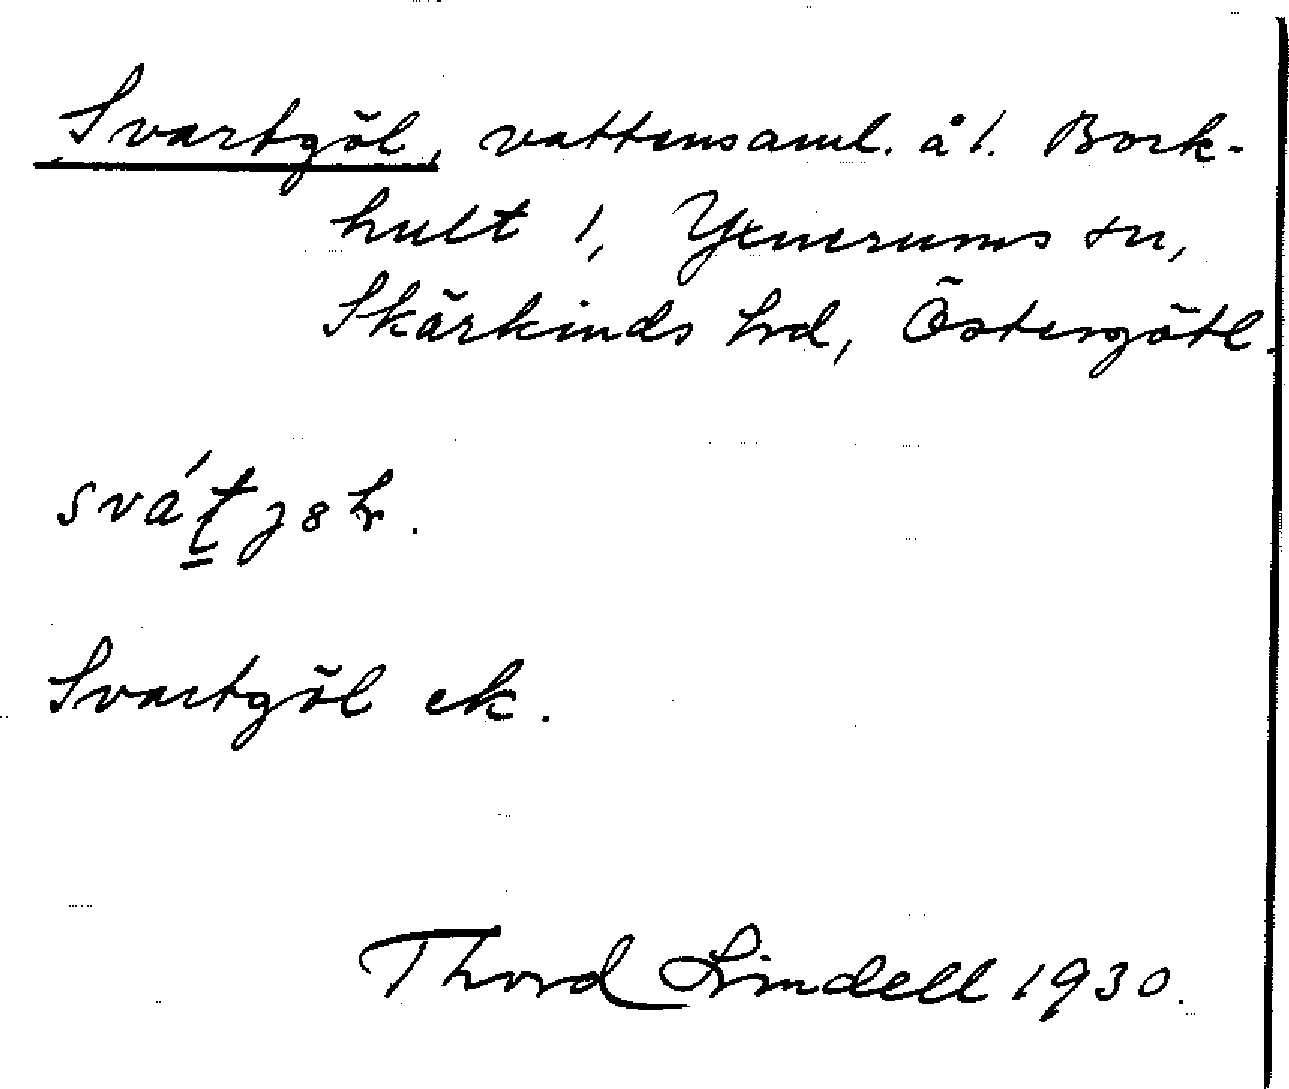 Svartgöl, vattensaml. å 1. Bork-
hult 1, Yxnerums sn,
Skärkinds hd, Östergötl.
Svartgöl ek.
Thord Lindell 1930.